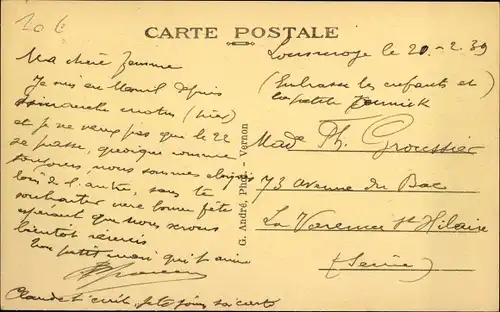 20 €
CARTE POSTALE
Ma chère femme
Je suis au Mesnil depuis
dimanche matin (hier)
et je ne veux pas que le 22
se passe, quoique comme
toujours, nous sommes éloignés
loin de l'autre, sans te
souhaiter une bonne fête
espérant que nous serons
bientôt réunis
Ton petit mari qui t'aime
Claude t'écrit, je te joins sa carte
G. André, Phot. - Vernon
le 20-2.39
(Embrasse les enfants et
la petite Yannick
Mad Th. Groussier
73 avenue du Bac
La Varenne St Hilaire
(Seine)